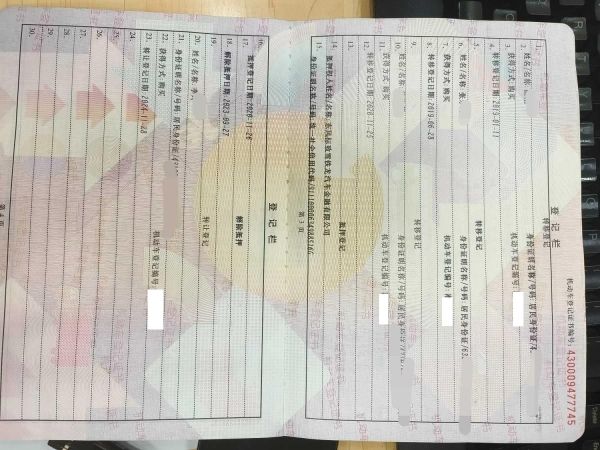 机动车登记证书编号: 430009477745
登 记 栏
1. 转移登记
2. 姓名/名称: 身份证明名称/号码: 居民身份证/4
3. 获得方式: 购买 机动车登记编号:
4. 转移登记日期:
5. 转移登记
6. 姓名/名称: 张 身份证明名称/号码: 居民身份证/63
7. 获得方式: 购买 机动车登记编号:
8. 转移登记日期: 2019-06-28
9. 转移登记
10. 姓名/名称: 身份证明名称/号码: 居民身
11. 获得方式: 购买 机动车登记编号:
12. 转移登记日期: 2020-11-25
13. 抵押登记
14. 抵押权人姓名/名称: 东风标致雪铁龙汽车金融有限公司
15. 身份证明名称/号码: 统一社会信用代码/
第 3 页
登 记 栏
16. 抵押登记日期: 2020-11-26
17. 解除抵押
18. 解除抵押日期: 2023-09-27
19. 转让登记
20. 姓名/名称: 李
21. 身份证明名称/号码: 居民身份证/4
22. 获得方式: 购买 机动车登记编号:
23. 转让登记日期: 2024-11-28
24.
25.
26.
27.
28.
29.
30.
第 4 页